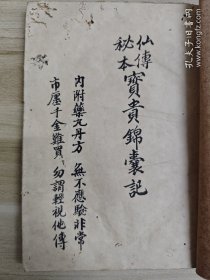 仙傳
秘本寳貴錦囊記
內附藥丸丹方 無不應驗非常
市屋千金難買 勿謂輕視他傳
孔夫子旧书网